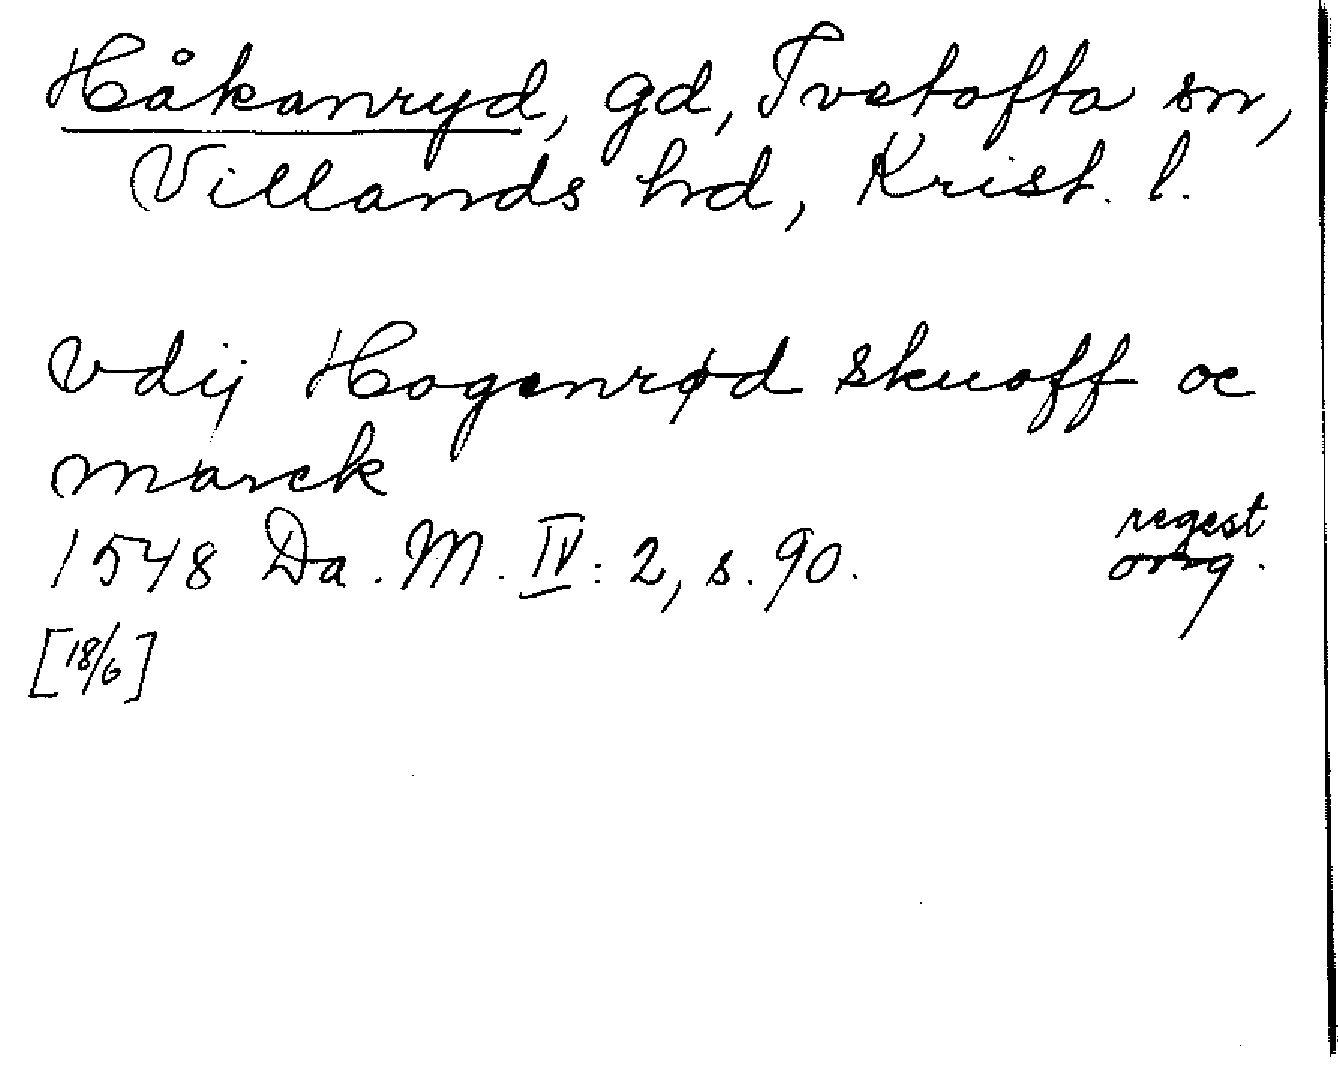 Håkanryd, gd, Ivetofta sn,
Villands hd, Krist. l.
vdij Hogenrød skuoff oc
marck
regest
1548 Da. M. IV: 2, s. 90. orig.
[18/6]